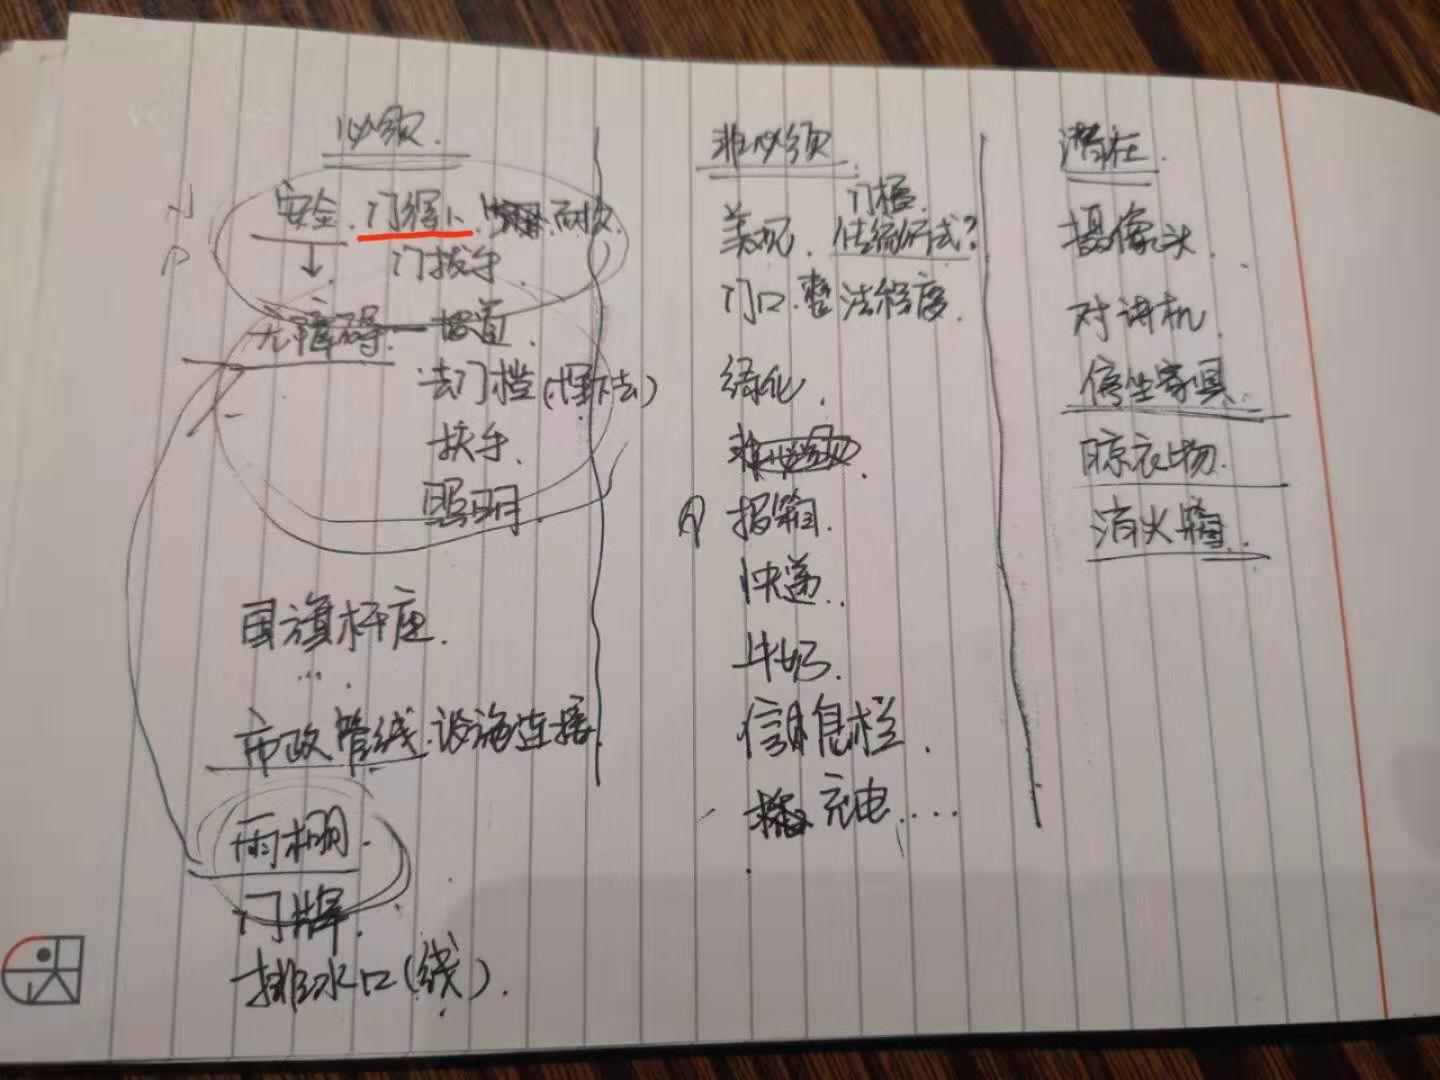 必须.
安全. 门
门拔手
无障碍 — 坡道.
去门槛(埋下去)
扶手.
照明.
国旗杆座.
市政管线.设施连接.
雨棚.
门牌.
排水口(线).
非必须
门槛.
美观. 传统仪式?
门口.整洁程度.
绿化.
报箱.
快递.
牛奶.
信息栏.
充电....
潜在.
摄像头.
对讲机.
停坐家具.
晾衣物.
消火箱.